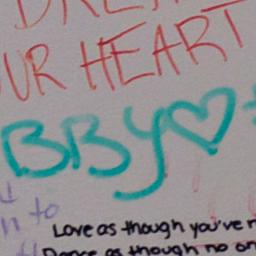 UR HEART
BBY♡
to
Love as though you've
Dance as though no on